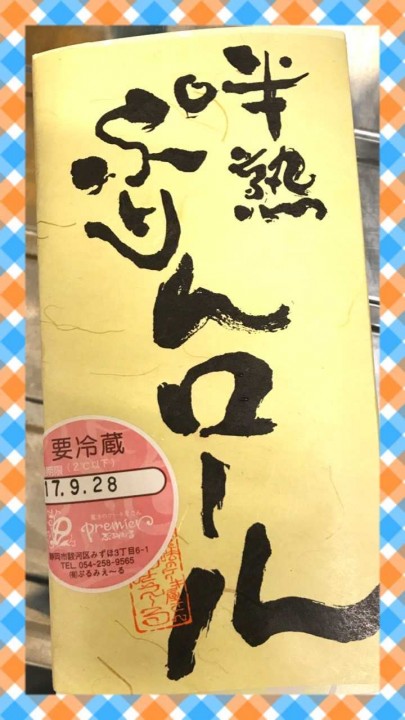 半熟
ぷりんロール
要冷蔵
17.9.28
Premier
静岡市駿河区みずほ3丁目6-1
TEL. 054-258-9565
㈲ぷるみえ〜る